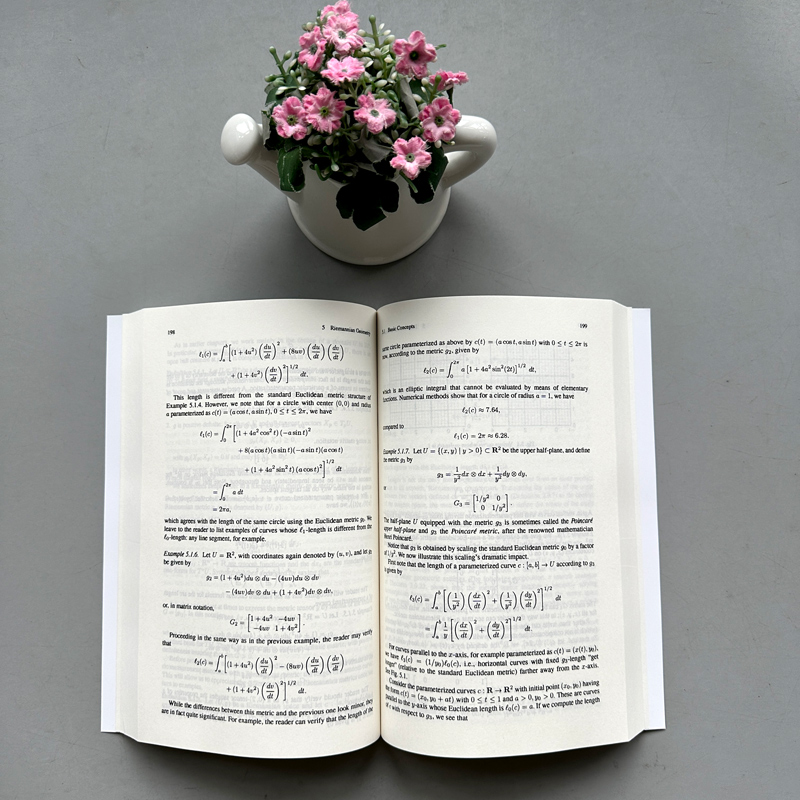 198 5 Riemannian Geometry
ℓ₁(c) = ∫ₐᵇ [(1 + 4u²) (du/dt)² + (8uv) (du/dt) (dv/dt)
+ (1 + 4v²) (dv/dt)²]^{1/2} dt.
This length is different from the standard Euclidean metric structure of
Example 5.1.4. However, we note that for a circle with center (0, 0) and radius
a parameterized as c(t) = (a cos t, a sin t), 0 ≤ t ≤ 2π, we have
ℓ₁(c) = ∫₀^{2π} [(1 + 4a² cos² t) (−a sin t)²
+ 8(a cos t)(a sin t)(−a sin t)(a cos t)
+ (1 + 4a² sin² t) (a cos t)²]^{1/2} dt
= ∫₀^{2π} a dt
= 2πa,
which agrees with the length of the same circle using the Euclidean metric g₀. We
leave to the reader to list examples of curves whose ℓ₁-length is different from the
ℓ₀-length: any line segment, for example.
Example 5.1.6. Let U = R², with coordinates again denoted by (u, v), and let g₂
be given by
g₂ = (1 + 4u²)du ⊗ du − (4uv)du ⊗ dv
− (4uv)dv ⊗ du + (1 + 4v²)dv ⊗ dv,
or, in matrix notation,
G₂ = [1 + 4u² −4uv
−4uv 1 + 4v²].
Proceeding in the same way as in the previous example, the reader may verify
that
ℓ₂(c) = ∫ₐᵇ [(1 + 4u²) (du/dt)² − (8uv) (du/dt) (dv/dt)
+ (1 + 4v²) (dv/dt)²]^{1/2} dt.
While the differences between this metric and the previous one look minor, they
are in fact quite significant. For example, the reader can verify that the length of the
Basic Concepts 199
same circle parameterized as above by c(t) = (a cos t, a sin t) with 0 ≤ t ≤ 2π is
now, according to the metric g₂, given by
ℓ₂(c) = ∫₀^{2π} a [1 + 4a² sin²(2t)]^{1/2} dt,
which is an elliptic integral that cannot be evaluated by means of elementary
functions. Numerical methods show that for a circle of radius a = 1, we have
ℓ₂(c) ≈ 7.64,
compared to
ℓ₁(c) = 2π ≈ 6.28.
Example 5.1.7. Let U = {(x, y) | y > 0} ⊂ R² be the upper half-plane, and define
the metric g₃ by
g₃ = 1/y² dx ⊗ dx + 1/y² dy ⊗ dy,
or
G₃ = [1/y² 0
0 1/y²].
The half-plane U equipped with the metric g₃ is sometimes called the Poincaré
upper half-plane and g₃ the Poincaré metric, after the renowned mathematician
Henri Poincaré.
Notice that g₃ is obtained by scaling the standard Euclidean metric g₀ by a factor
of 1/y². We now illustrate this scaling's dramatic impact.
First note that the length of a parameterized curve c : [a, b] → U according to g₃
is given by
ℓ₃(c) = ∫ₐᵇ [(1/y²) (dx/dt)² + (1/y²) (dy/dt)²]^{1/2} dt
= ∫ₐᵇ 1/y [(dx/dt)² + (dy/dt)²]^{1/2} dt.
For curves parallel to the x-axis, for example parameterized as c(t) = (x(t), y₀),
we have ℓ₃(c) = (1/y₀)ℓ₀(c), i.e., horizontal curves with fixed g₃-length "get
longer" (relative to the standard Euclidean metric) farther away from the x-axis.
See Fig. 5.1.
Consider the parameterized curves c : R → R² with initial point (x₀, y₀) having
the form c(t) = (x₀, y₀ + at) with 0 ≤ t ≤ 1 and a > 0, y₀ > 0. These are curves
parallel to the y-axis whose Euclidean length is ℓ₀(c) = a. If we compute the length
of c with respect to g₃, we see that